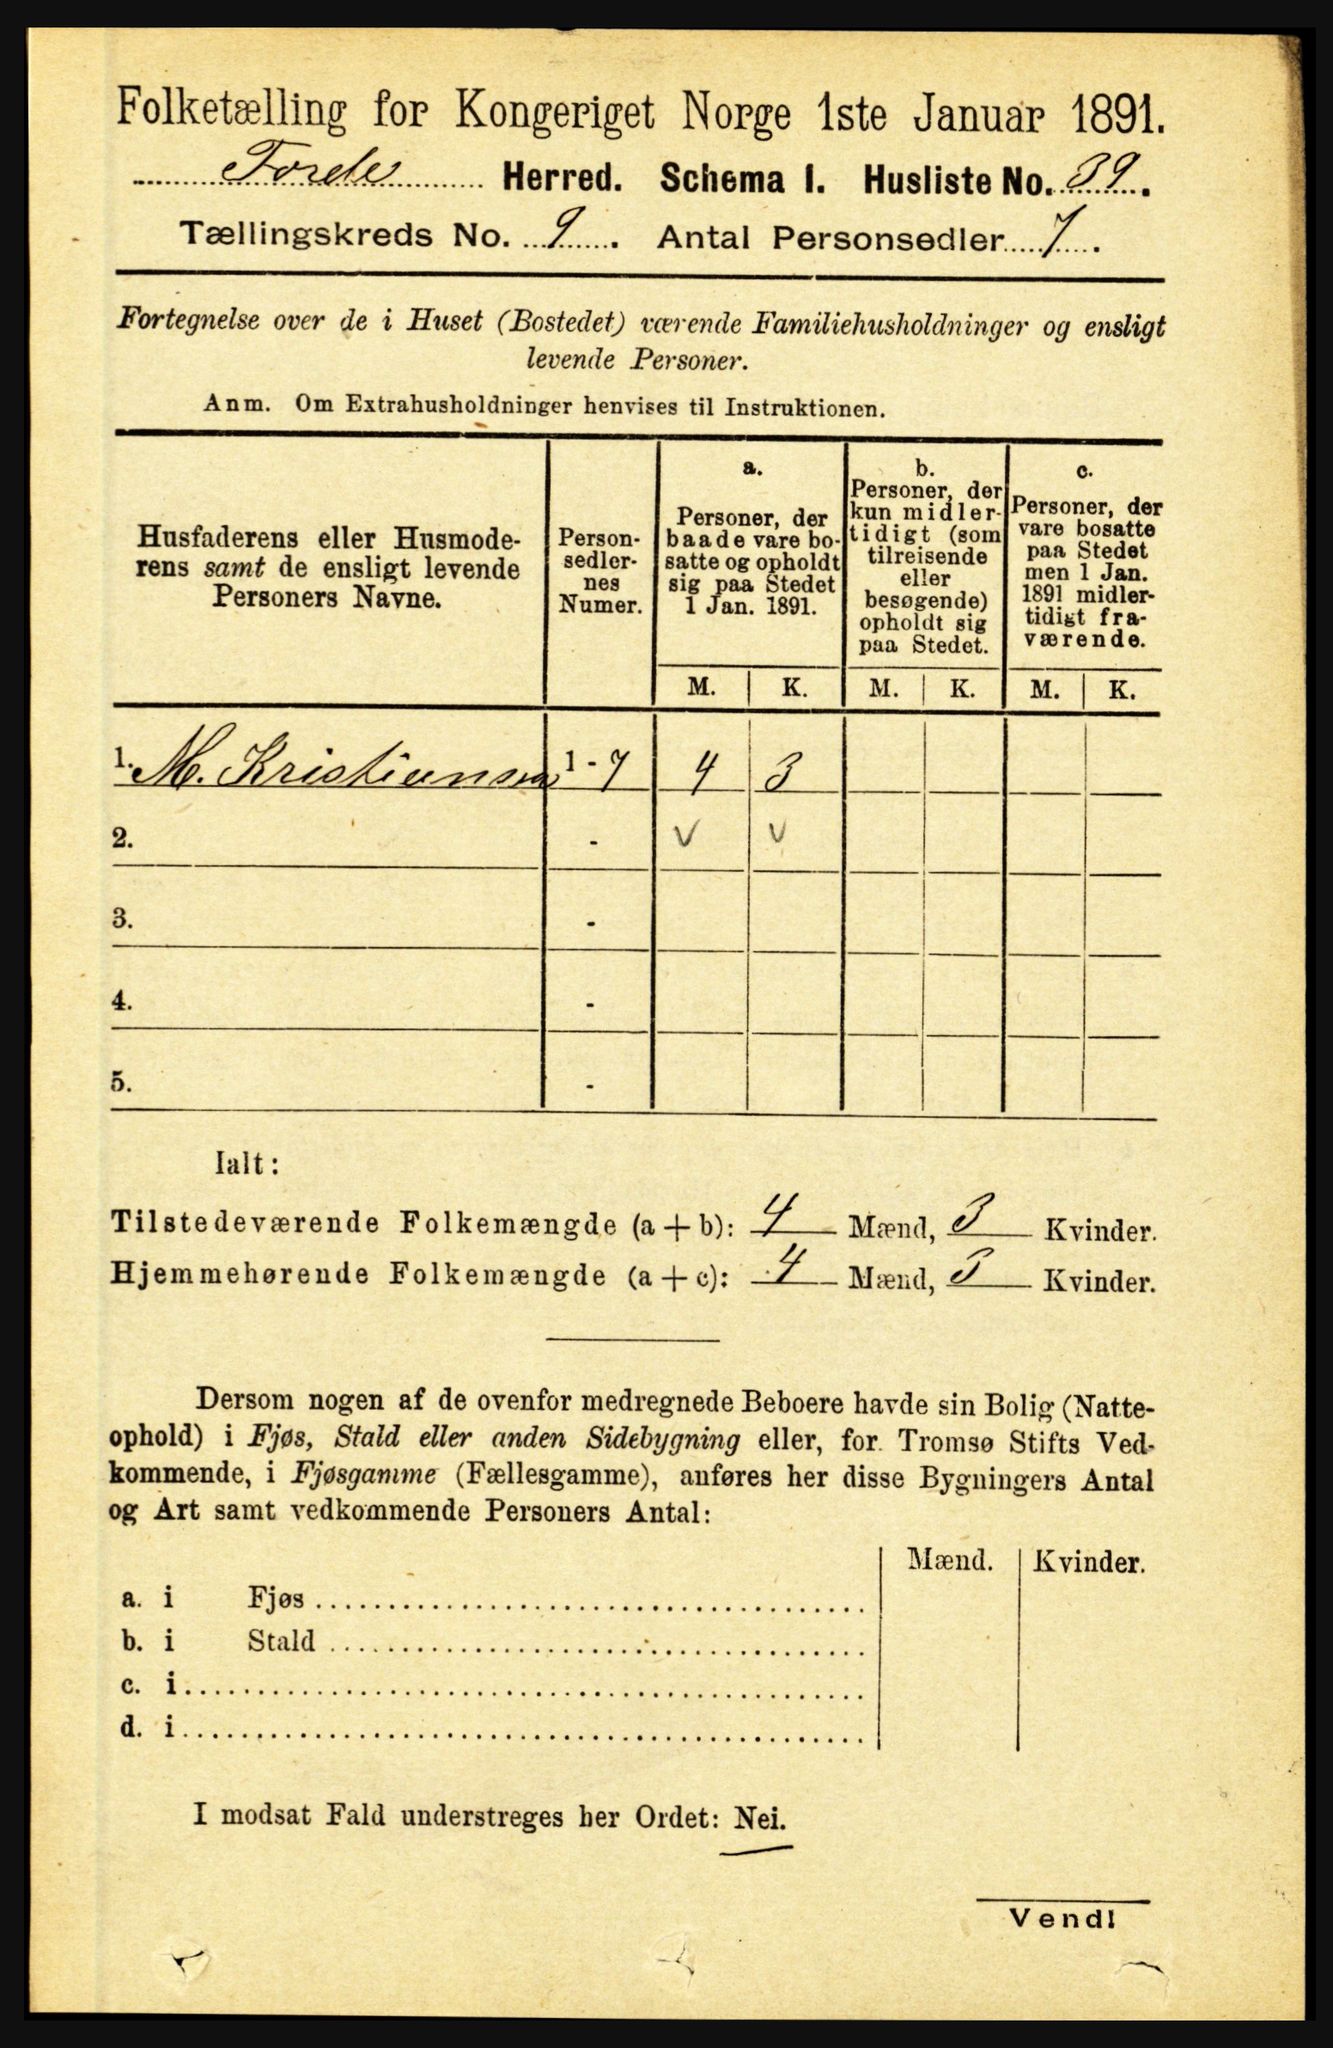 Folketælling for Kongeriget Norge 1ste Januar 1891.
Førde Herred. Schema I. Husliste No. 39.
Tællingskreds No. 9. Antal Personsedler 7.
Fortegnelse over de i Huset (Bostedet) værende Familiehusholdninger og ensligt
levende Personer.
Anm. Om Extrahusholdninger henvises til Instruktionen.
Husfaderens eller Husmode-
rens samt de ensligt levende
Personers Navne.
Person-
sedler-
nes
Numer.
a.
Personer, der
baade vare bo-
satte og opholdt
sig paa Stedet
1 Jan. 1891.
b.
Personer, der
kun midler-
tidigt (som
tilreisende
eller
besøgende)
opholdt sig
paa Stedet.
c.
Personer, der
vare bosatte
paa Stedet
men 1 Jan.
1891 midler-
tidigt fra-
værende.
M. K. M. K. M. K.
1. M. Kristiansen 1 - 7 4 3
2. - v v
3. -
4. -
5. -
Ialt:
Tilstedeværende Folkemængde (a + b): 4 Mænd, 3 Kvinder.
Hjemmehørende Folkemængde (a + c): 4 Mænd, 3 Kvinder.
Dersom nogen af de ovenfor medregnede Beboere havde sin Bolig (Natte-
ophold) i Fjøs, Stald eller anden Sidebygning eller, for Tromsø Stifts Ved-
kommende, i Fjøsgamme (Fællesgamme), anføres her disse Bygningers Antal
og Art samt vedkommende Personers Antal:
Mænd. Kvinder.
a. i Fjøs
b. i Stald
c. i
d. i
I modsat Fald understreges her Ordet: Nei.
Vend!